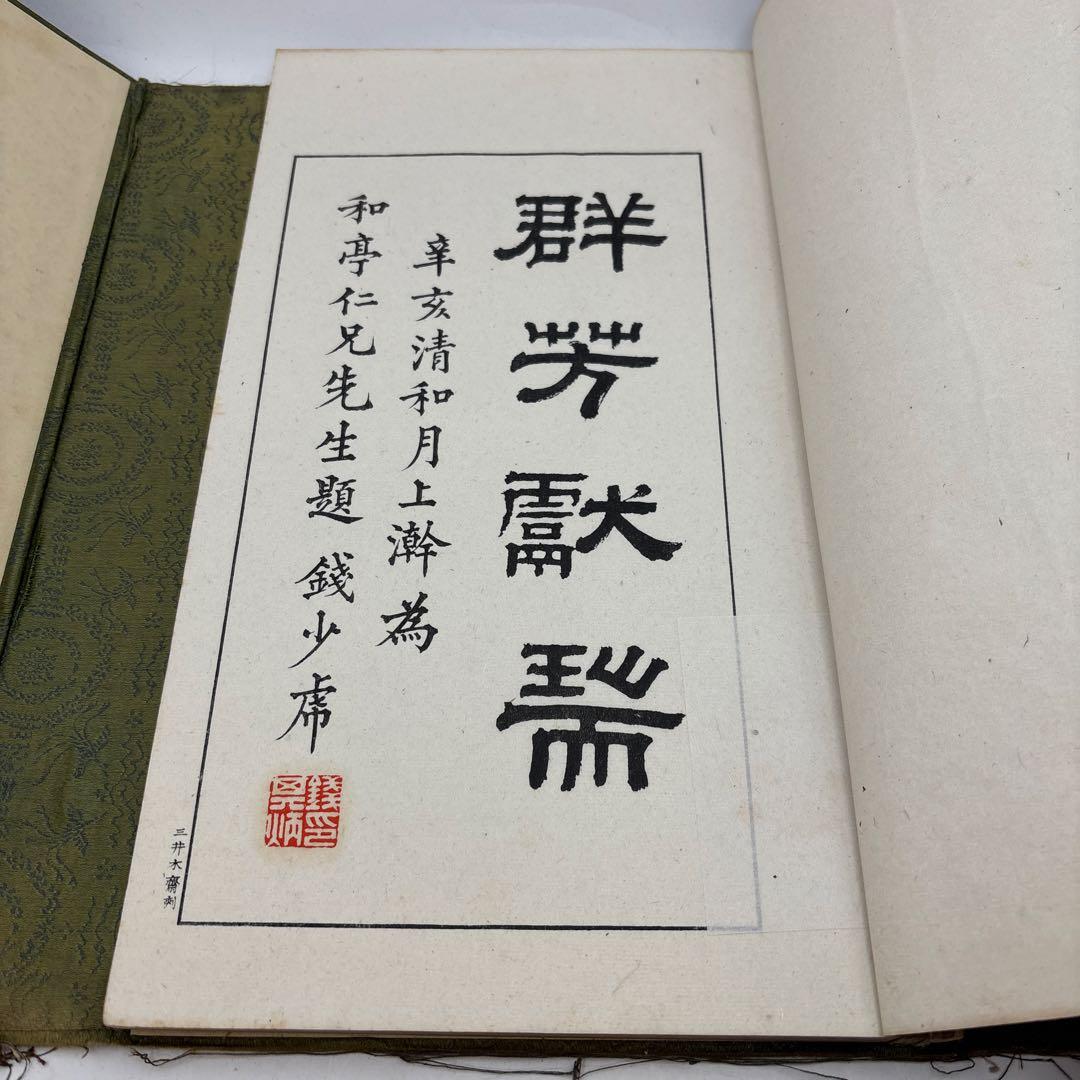 群芳獻瑞
辛亥清和月上澣為
和亭仁兄先生題 錢少虎
三井木齋刻